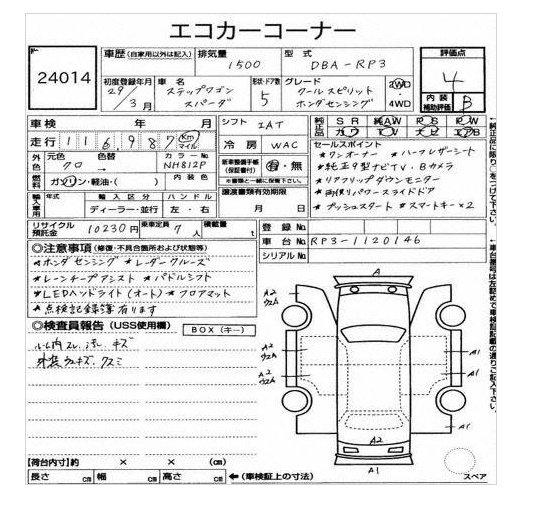 エコカーコーナー
24014
車歴(自家用以外は記入) 排気量 型式 評価点
1500 DBA-RP3 4
初度登録年月 車名 形状・ドア数 グレード
29/3月 ステップワゴン スパーダ 5 クールスピリット ホンダセンシング 2WD 4WD
内装補助評価 B
車検 年 月 シフト IAT 純正 SR 純AW PS PW
走行 116,987 Km マイル 冷房 WAC カワ TV ナビ エアB
外色 元色 色替 カラーNo 内装色
クロ → NH812P
新車整備手帳(保証書付) 有・無
セールスポイント
*ワンオーナー *ハーフレザーシート
*純正9型ナビTV、Bカメラ
*リアフリップダウンモニター
*両側パワースライドドア
*プッシュスタート *スマートキー×2
燃料 ガソリン・軽油・( )
輸入車用 年式 輸入区分 ハンドル
ディーラー・並行 左・右
譲渡書類有効期限
月 日
リサイクル預託金 10230円 乗車定員 7人 積載量 t
登録No
車台No RP3-1120146
シリアルNo
◎注意事項(修復・不具合箇所および状態等)
*ホンダセンシング *レーダークルーズ
*レーンキープアシスト *パドルシフト
*LEDヘッドライト(オート) *フロアマット
*点検記録簿有ります
◎検査員報告(USS使用欄) BOX(キー)
外装ウスキズ、クスミ
A
A2
A2
A2
A1
A1
A1
A2
A1
スペア
【荷台内寸】約 × × (cm)
長さ cm 幅 cm 高さ cm ←(車検証上の寸法)